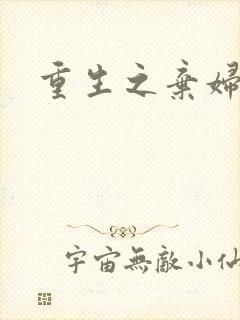 重生之棄婦
宇宙無敵小仙